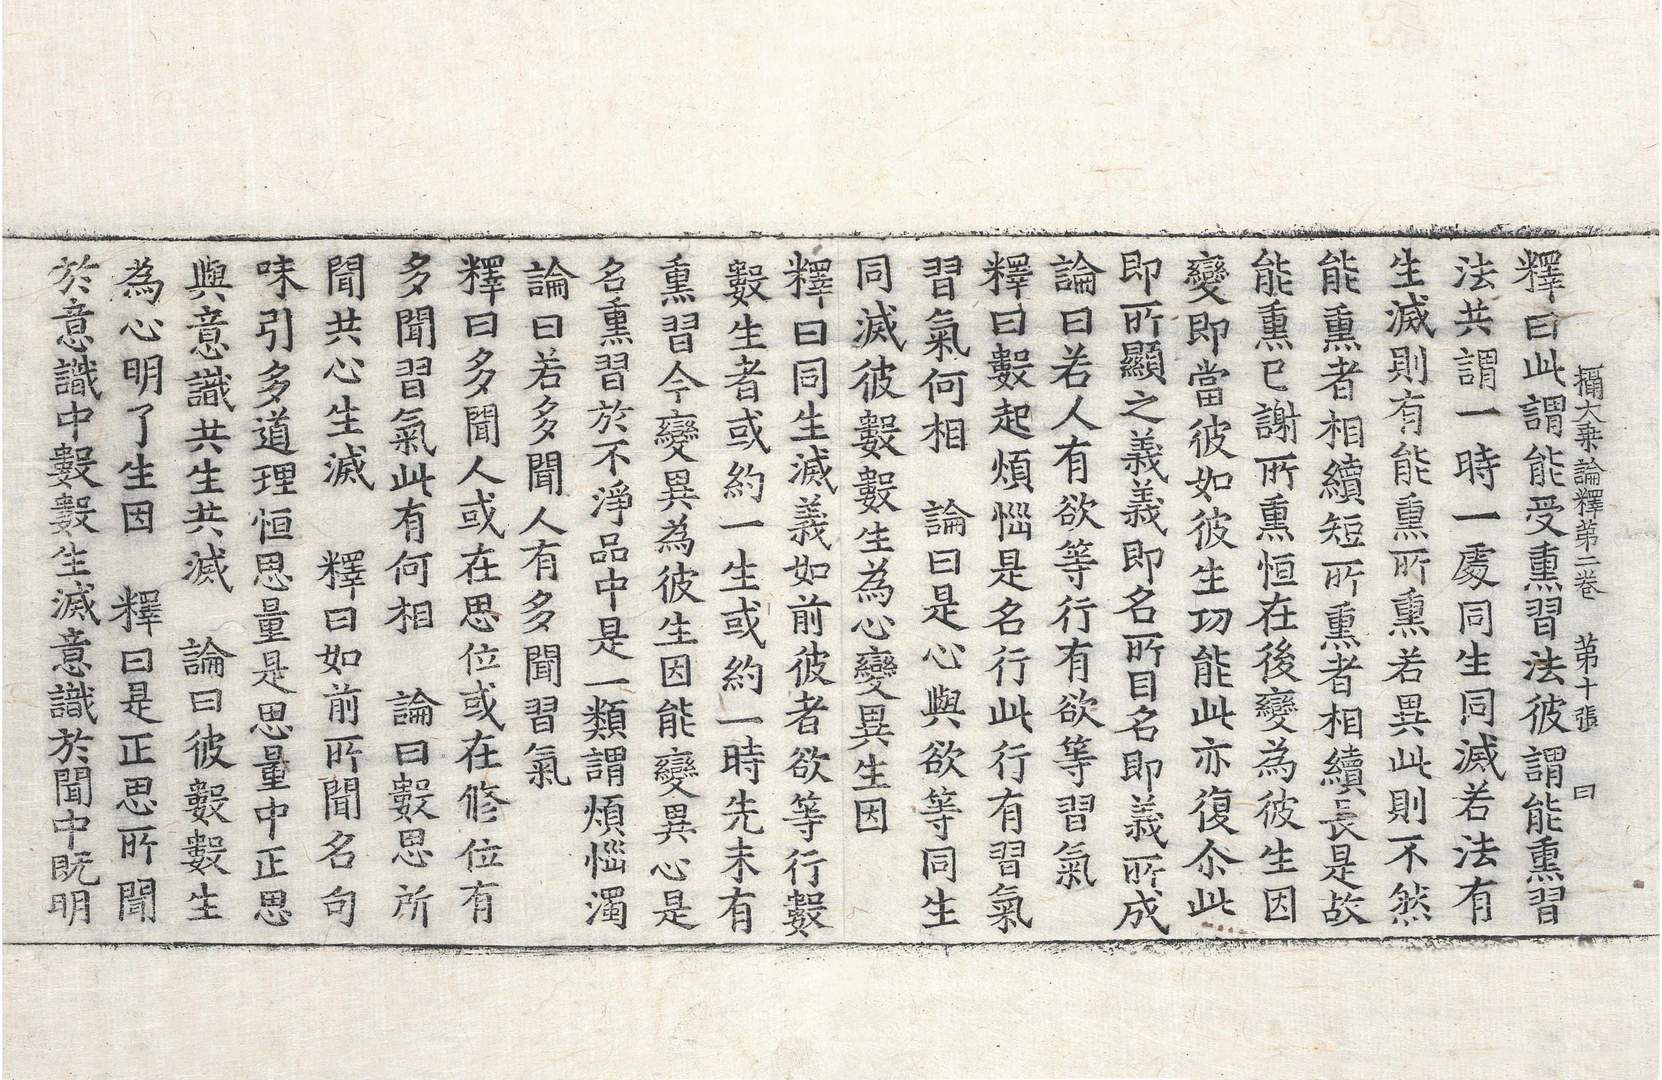 攝大乗論釋苐二卷 苐十張 曰
釋曰此謂能受熏習法彼謂能熏習
法共謂一時一處同生同滅若法有
生滅則有能熏所熏若異此則不然
能熏者相續短所熏者相續長是故
能熏已謝所熏恒在後變為彼生因
變即當彼如彼生功能此亦復尒此
即所顯之義義即名所目名即義所成
論曰若人有欲等行有欲等習氣
釋曰數起煩惱是名行此行有習氣
習氣何相 論曰是心與欲等同生
同滅彼數數生為心變異生因
釋曰同生滅義如前彼者欲等行數
數生者或約一生或約一時先未有
熏習今變異為彼生因能變異心是
名熏習於不淨品中是一類謂煩惱濁
論曰若多聞人有多聞習氣
釋曰多聞人或在思位或在修位有
多聞習氣此有何相 論曰數思所
聞共心生滅 釋曰如前所聞名句
味引多道理恒思量是思量中正思
與意識共生共滅 論曰彼數數生
為心明了生因 釋曰是正思所聞
於意識中數數生滅意識於聞中既明